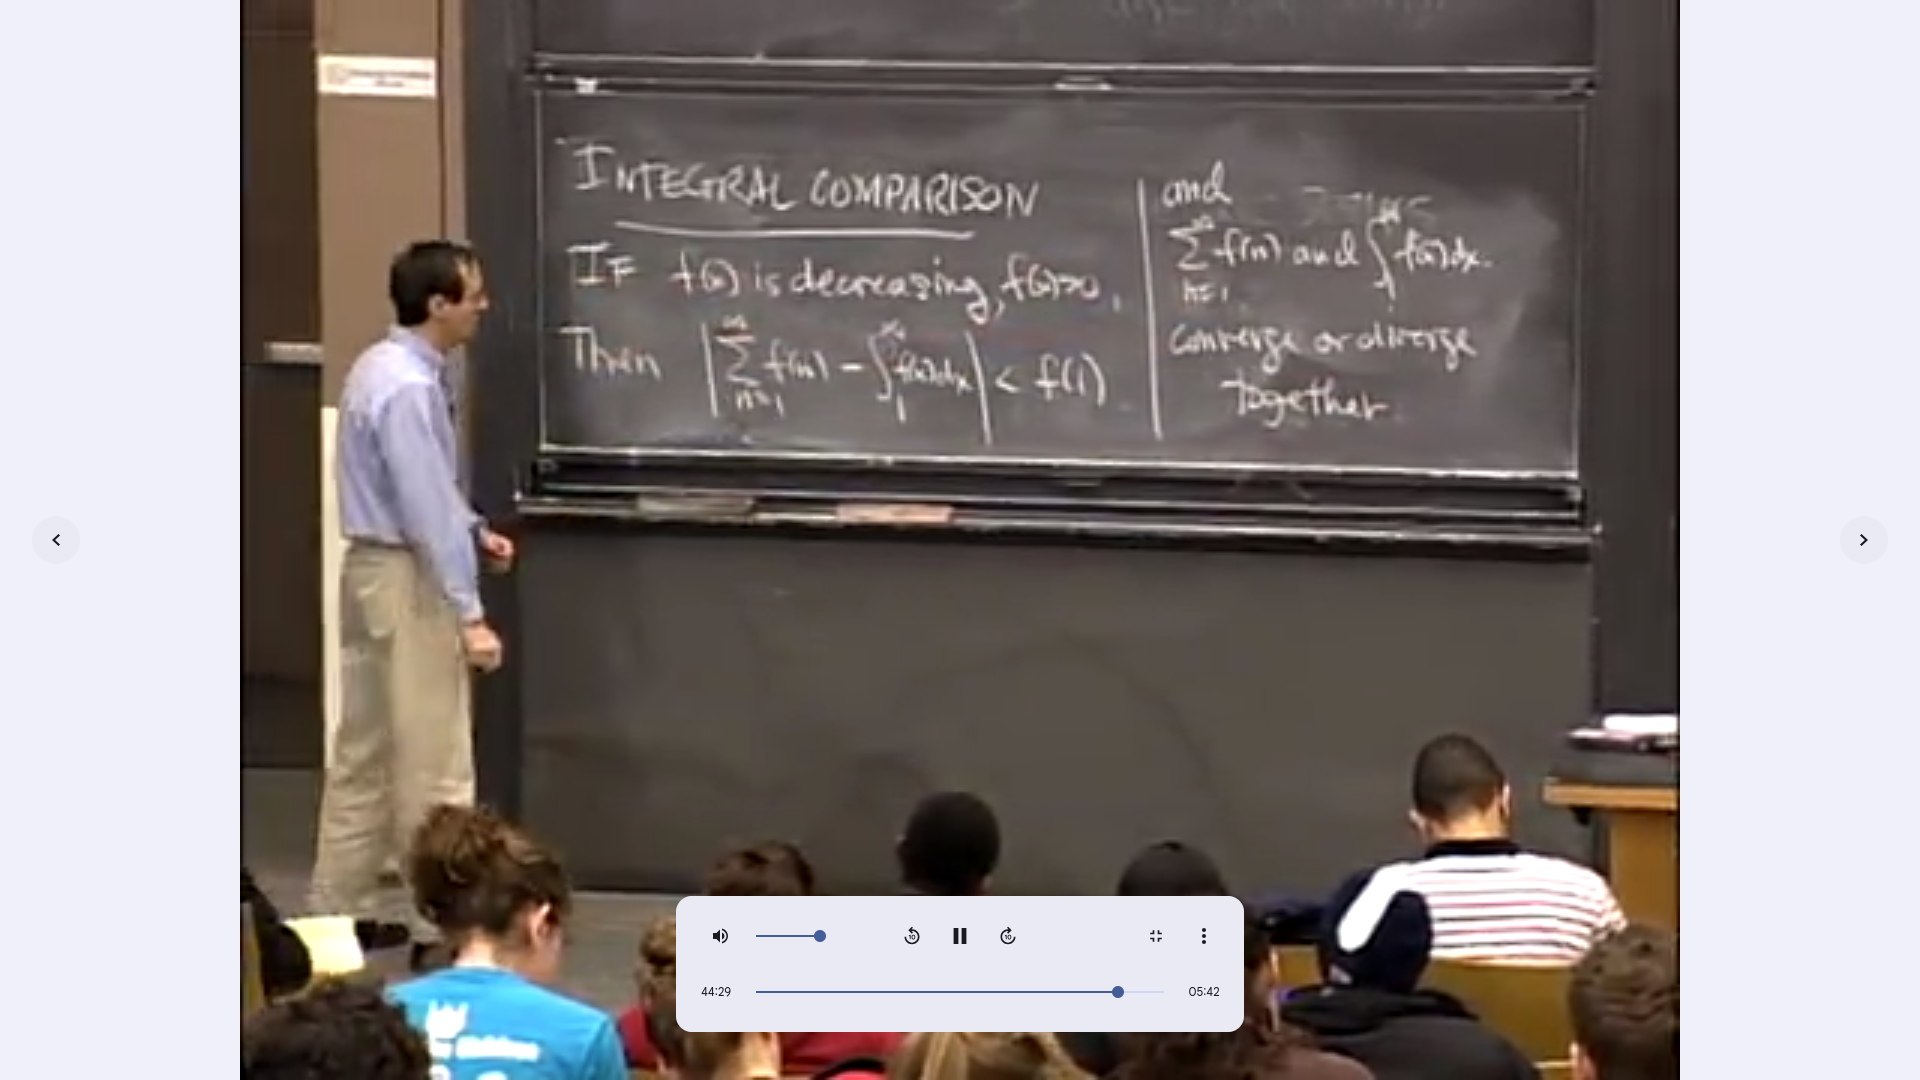 INTEGRAL COMPARISON
IF f(x) is decreasing, f(x)>0,
Then |∑_{n=1}^∞ f(n) - ∫_1^∞ f(x)dx| < f(1)
and
∑_{n=1}^∞ f(n) and ∫_1^∞ f(x)dx.
converge or diverge
together.
44:29
05:42